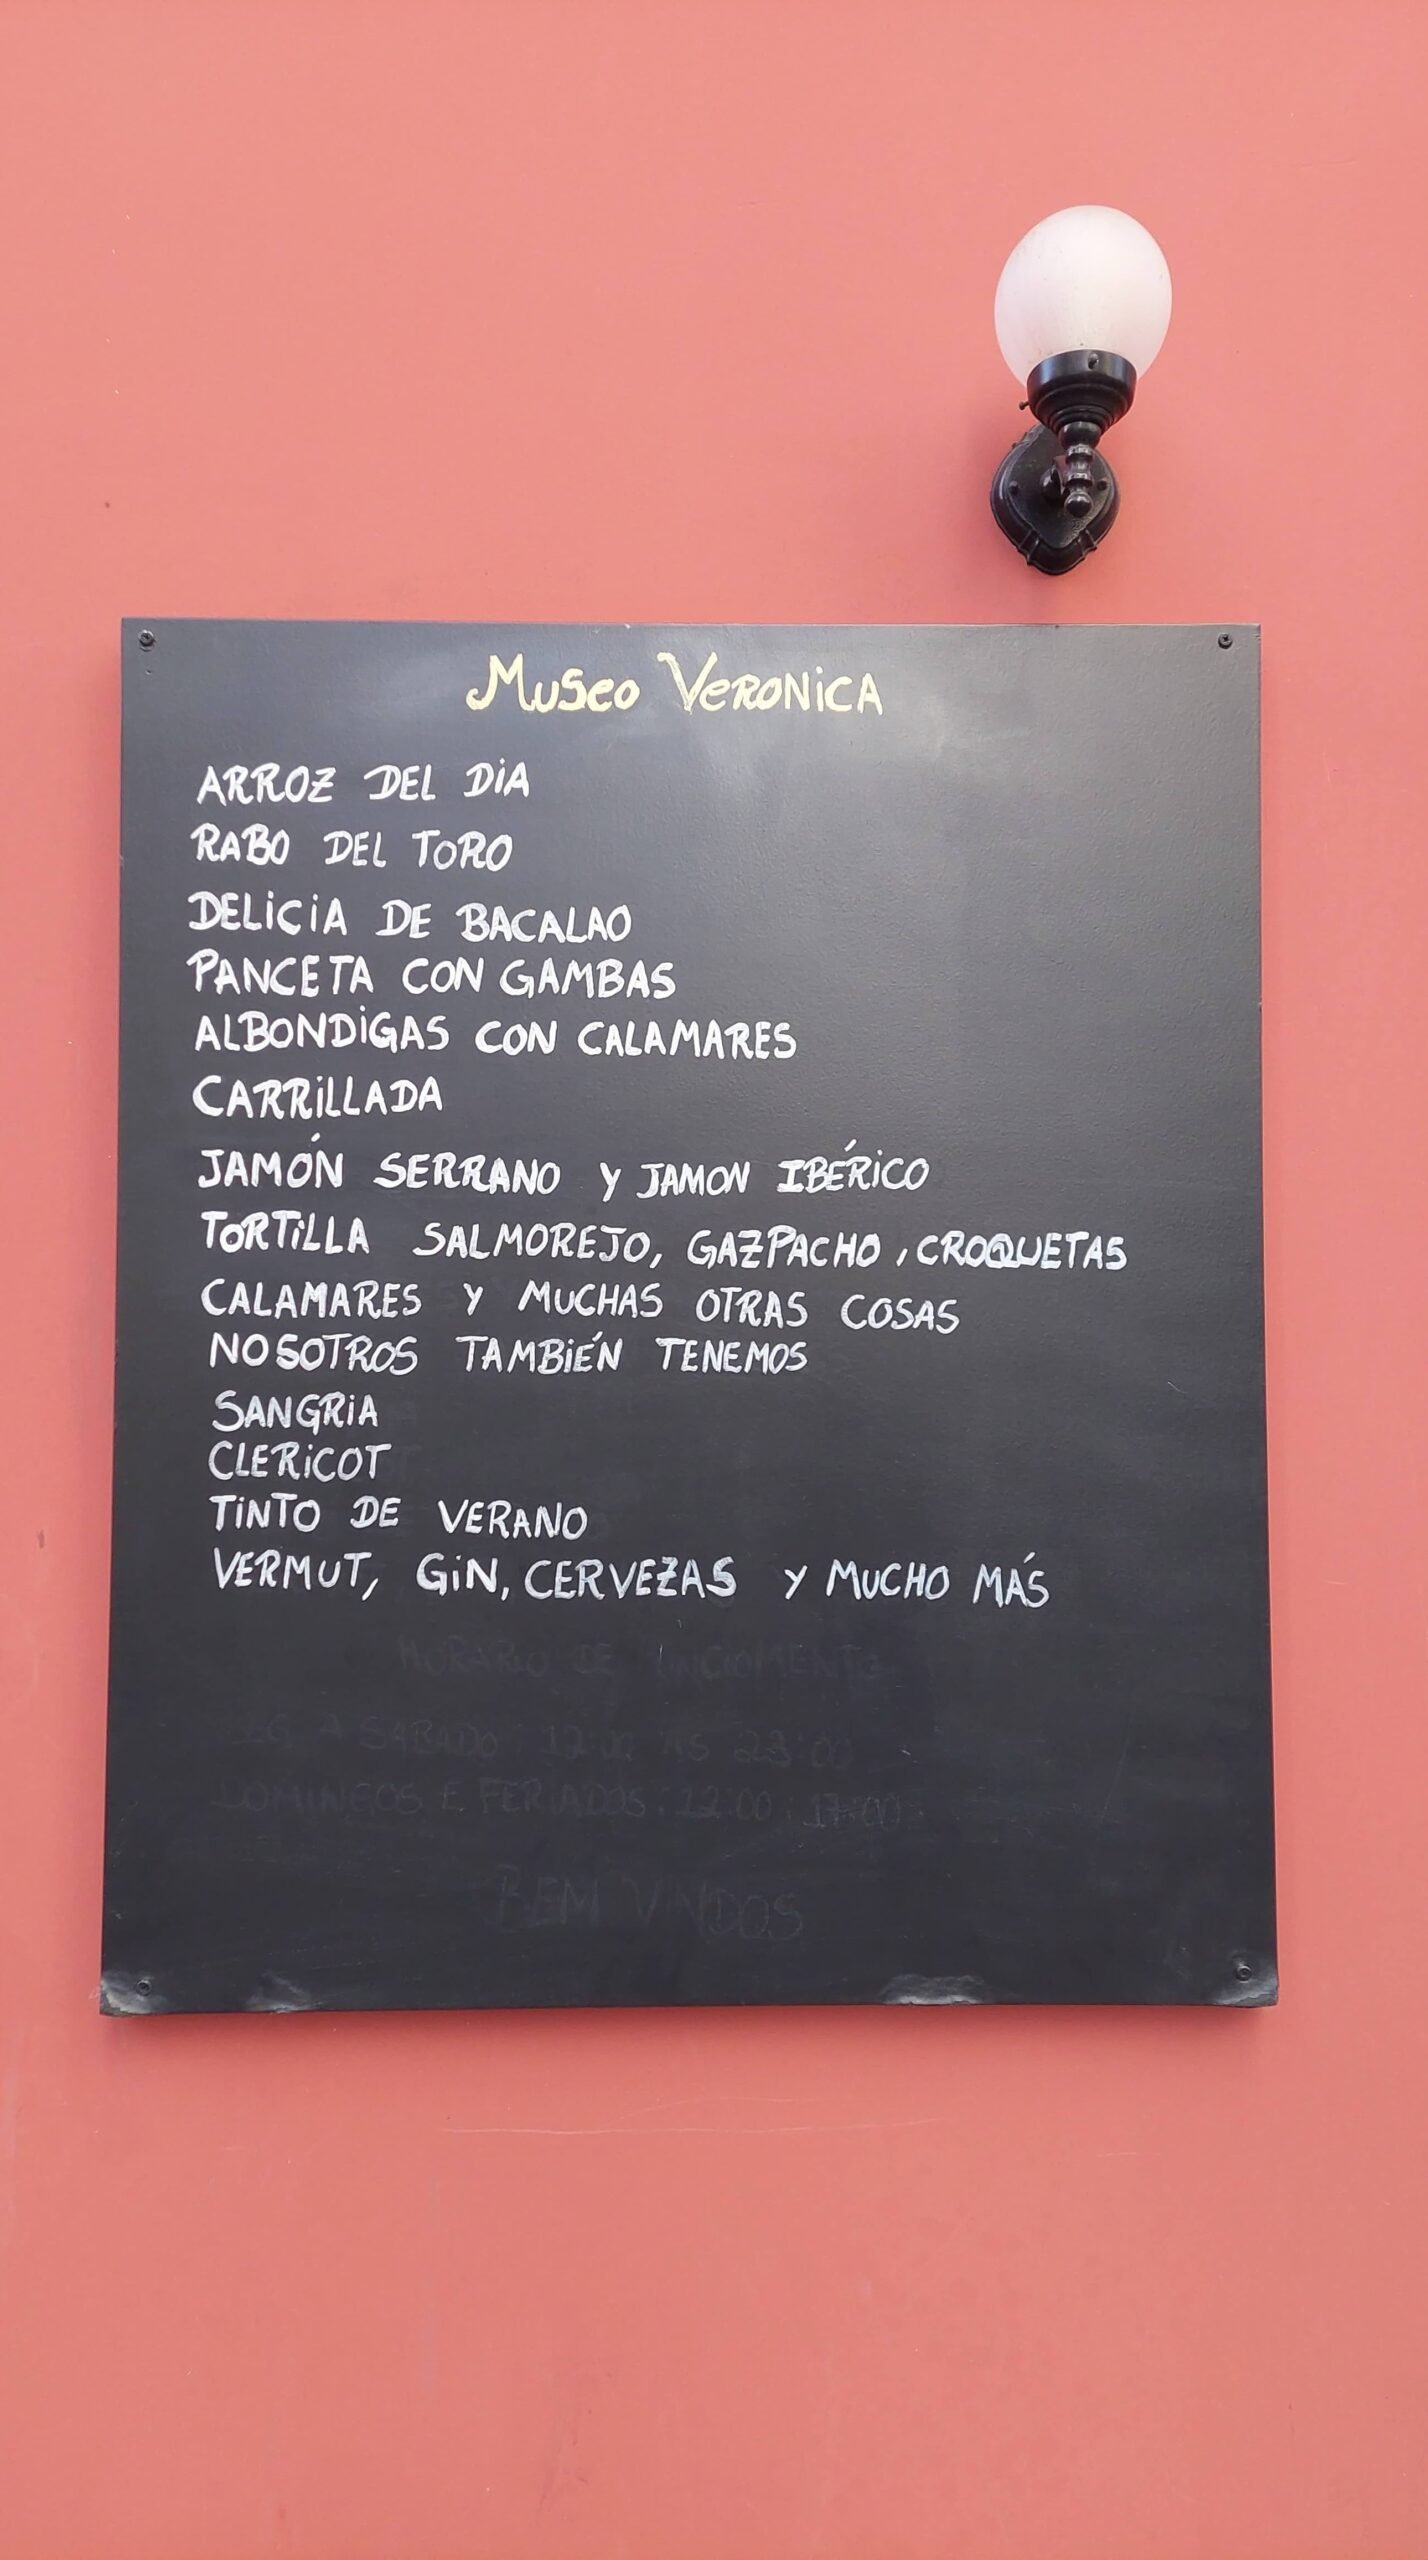 Museo Veronica
ARROZ DEL DiA
RABO DEL TORO
DELiCiA DE BACALAO
PANCETA CON GAMBAS
ALBONDiGAS CON CALAMARES
CARRiLLADA
JAMÓN SERRANO Y JAMON IBÉRiCO
TORTiLLA SALMOREJO, GAZPACHO, CROQUETAS
CALAMARES Y MUCHAS OTRAS COSAS
NOSOTROS TAMBiÉN TENEMOS
SANGRiA
CLERiCOT
TiNTO DE VERANO
VERMUT, GiN, CERVEZAS Y MUCHO MÁS
HORARIO DE
A SABADO: 12:00 AS 23:00
DOMINGOS E FERIADOS: 12:00 : 17:00
BEM VINDOS